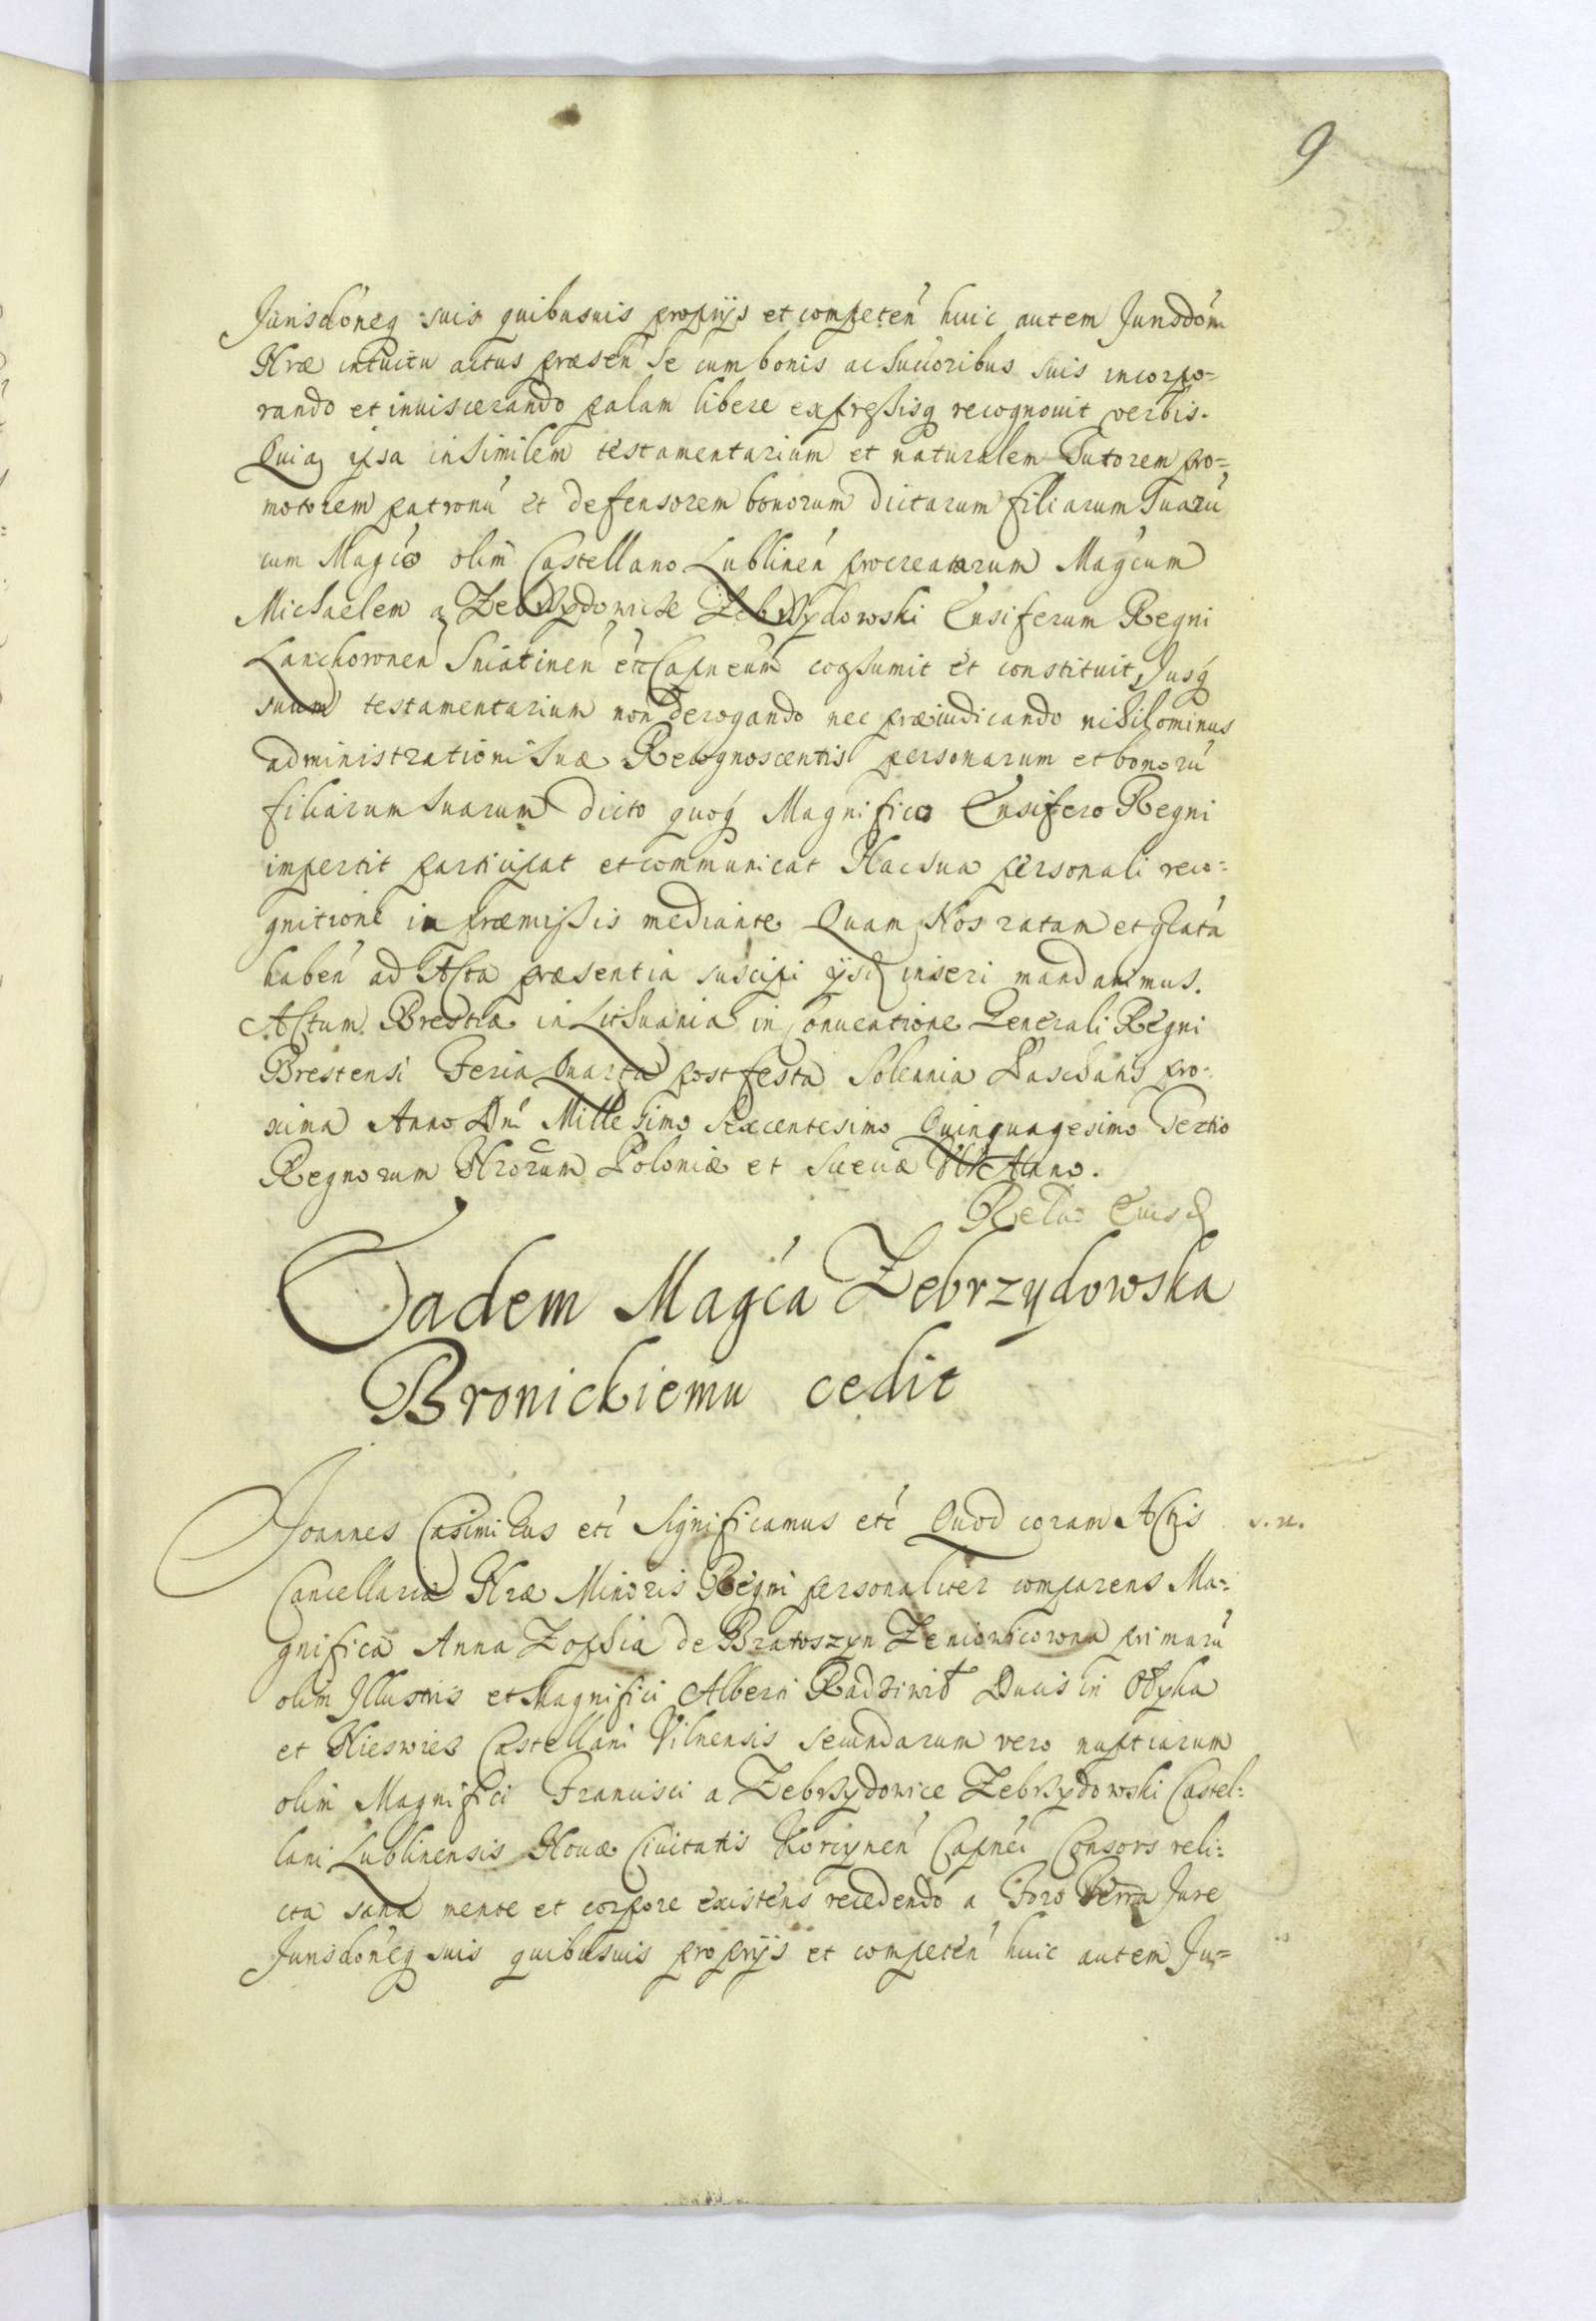 9
Jurisdóneq suis quibusuis proprijs et competeń huic autem Jurisdóni
Nræ intuitu actus præseń Se cum bonis ac Succoribus suis incorpo-
rando et inuiscerando palam libere expressisq recognouit verbis.
Quia ipsa in Similem testamentarium et naturalem Tutorem pro-
motorem patronū et defensorem bonorum dictarum filiarum Suarū
cum Magćo olim Castellano Lublineń procreatarum Magćum
Michaelem a Zebrzydowice Zebrzydowski Ensiferum Regni
Lanchoroneń Sniatineń etć Capneum coassumit et constituit, Jusq
suum testamentarium non derogando nec præiudicando nihilominus
administrationi Suæ Recognoscentis personarum et bonorū
filiarum Suarum dicto quoq Magnifico Ensifero Regni
impertit participat et communicat Hac sua personali reco-
gnitione in præmissis mediante Quam Nos ratam et gratā
habeń ad Acta præsentia suscipi ijsq inseri mandauimus.
Actum Brestiæ in Lithuania in Conuentione Generali Regni
Brestensi Feria Quarta post festa Solennia Paschatis pro-
xima Anno Dni Millesimo Sexcentesimo Quinquagesimo Tertio
Regnorum Nrorum Poloniæ et Sueciæ Vto Anno.
Relao Eiusd
Eadem Magća Zebrzydowska
Bronickiemu cedit
Joannes Casimirus etć Significamus etć Quod coram Actis s. n.
Cancellariæ Nræ Minoris Regni personaliter comparens Ma-
gnifica Anna Zophia de Bratoszyn Zenowiczowna primarū
olim Illustris et Magnifici Alberti Radziwił Ducis in Ołyka
et Nieswies Castellani Vilnensis secundarum vero nuptiarum
olim Magnifici Francisci a Zebrzydowice Zebrzydowski Castel-
lani Lublinensis Nouæ Ciuitatis Korcyneń Capnei Consors reli-
cta sana mente et corpore existens recedendo a Foro Terra Jure
Jurisdóneq suis quibusuis proprijs et competeń huic autem Ju-